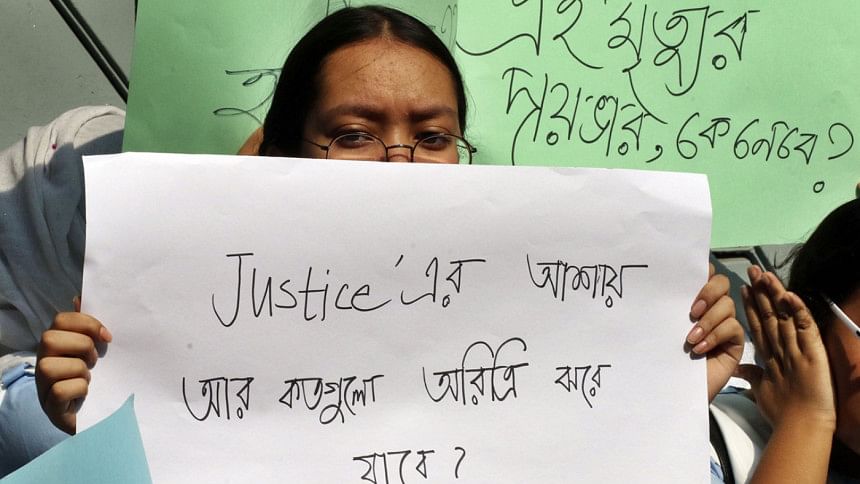 এই মৃত্যুর
দায়ভার, কে নেবে?
Justice'এর আশায়
আর কতগুলো অরিত্রি ঝরে
যাবে?